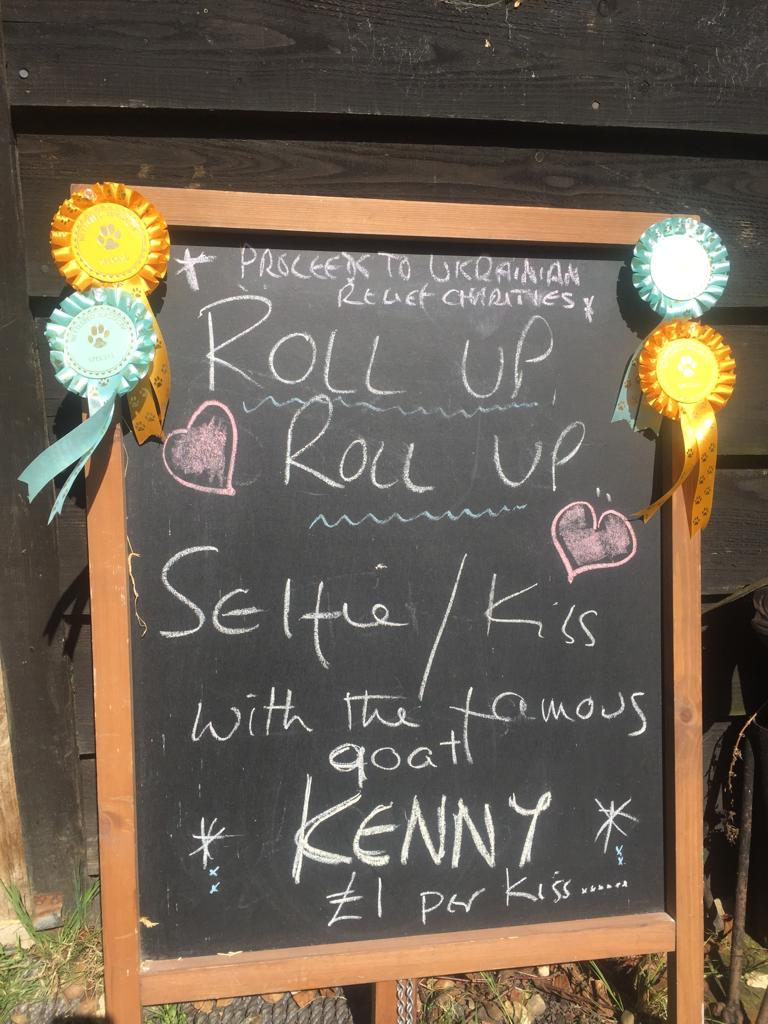 * PROCEEDS TO UKRAINIAN
RELIEF CHARITIES *
ROLL UP
ROLL UP
SElfie / Kiss
with the famous
goat
KENNY
£1 per kiss......